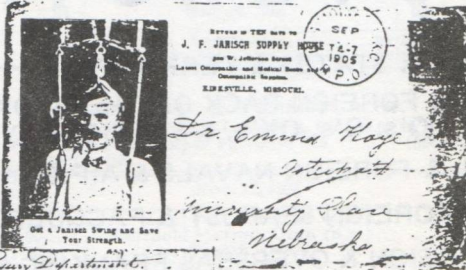 RETURN IN TEN DAYS TO
J. F. JANISCH SUPPLY HOUSE
W. Jefferson Street
Latest Osteopathic and Medical Books and
Osteopathic Supplies.
KIRKSVILLE, MISSOURI.
SEP
1905
P.O.
Dr. Emma Hoye
Osteopath
University Place
Nebraska
Get a Janisch Swing and Save
Your Strength.
Department.